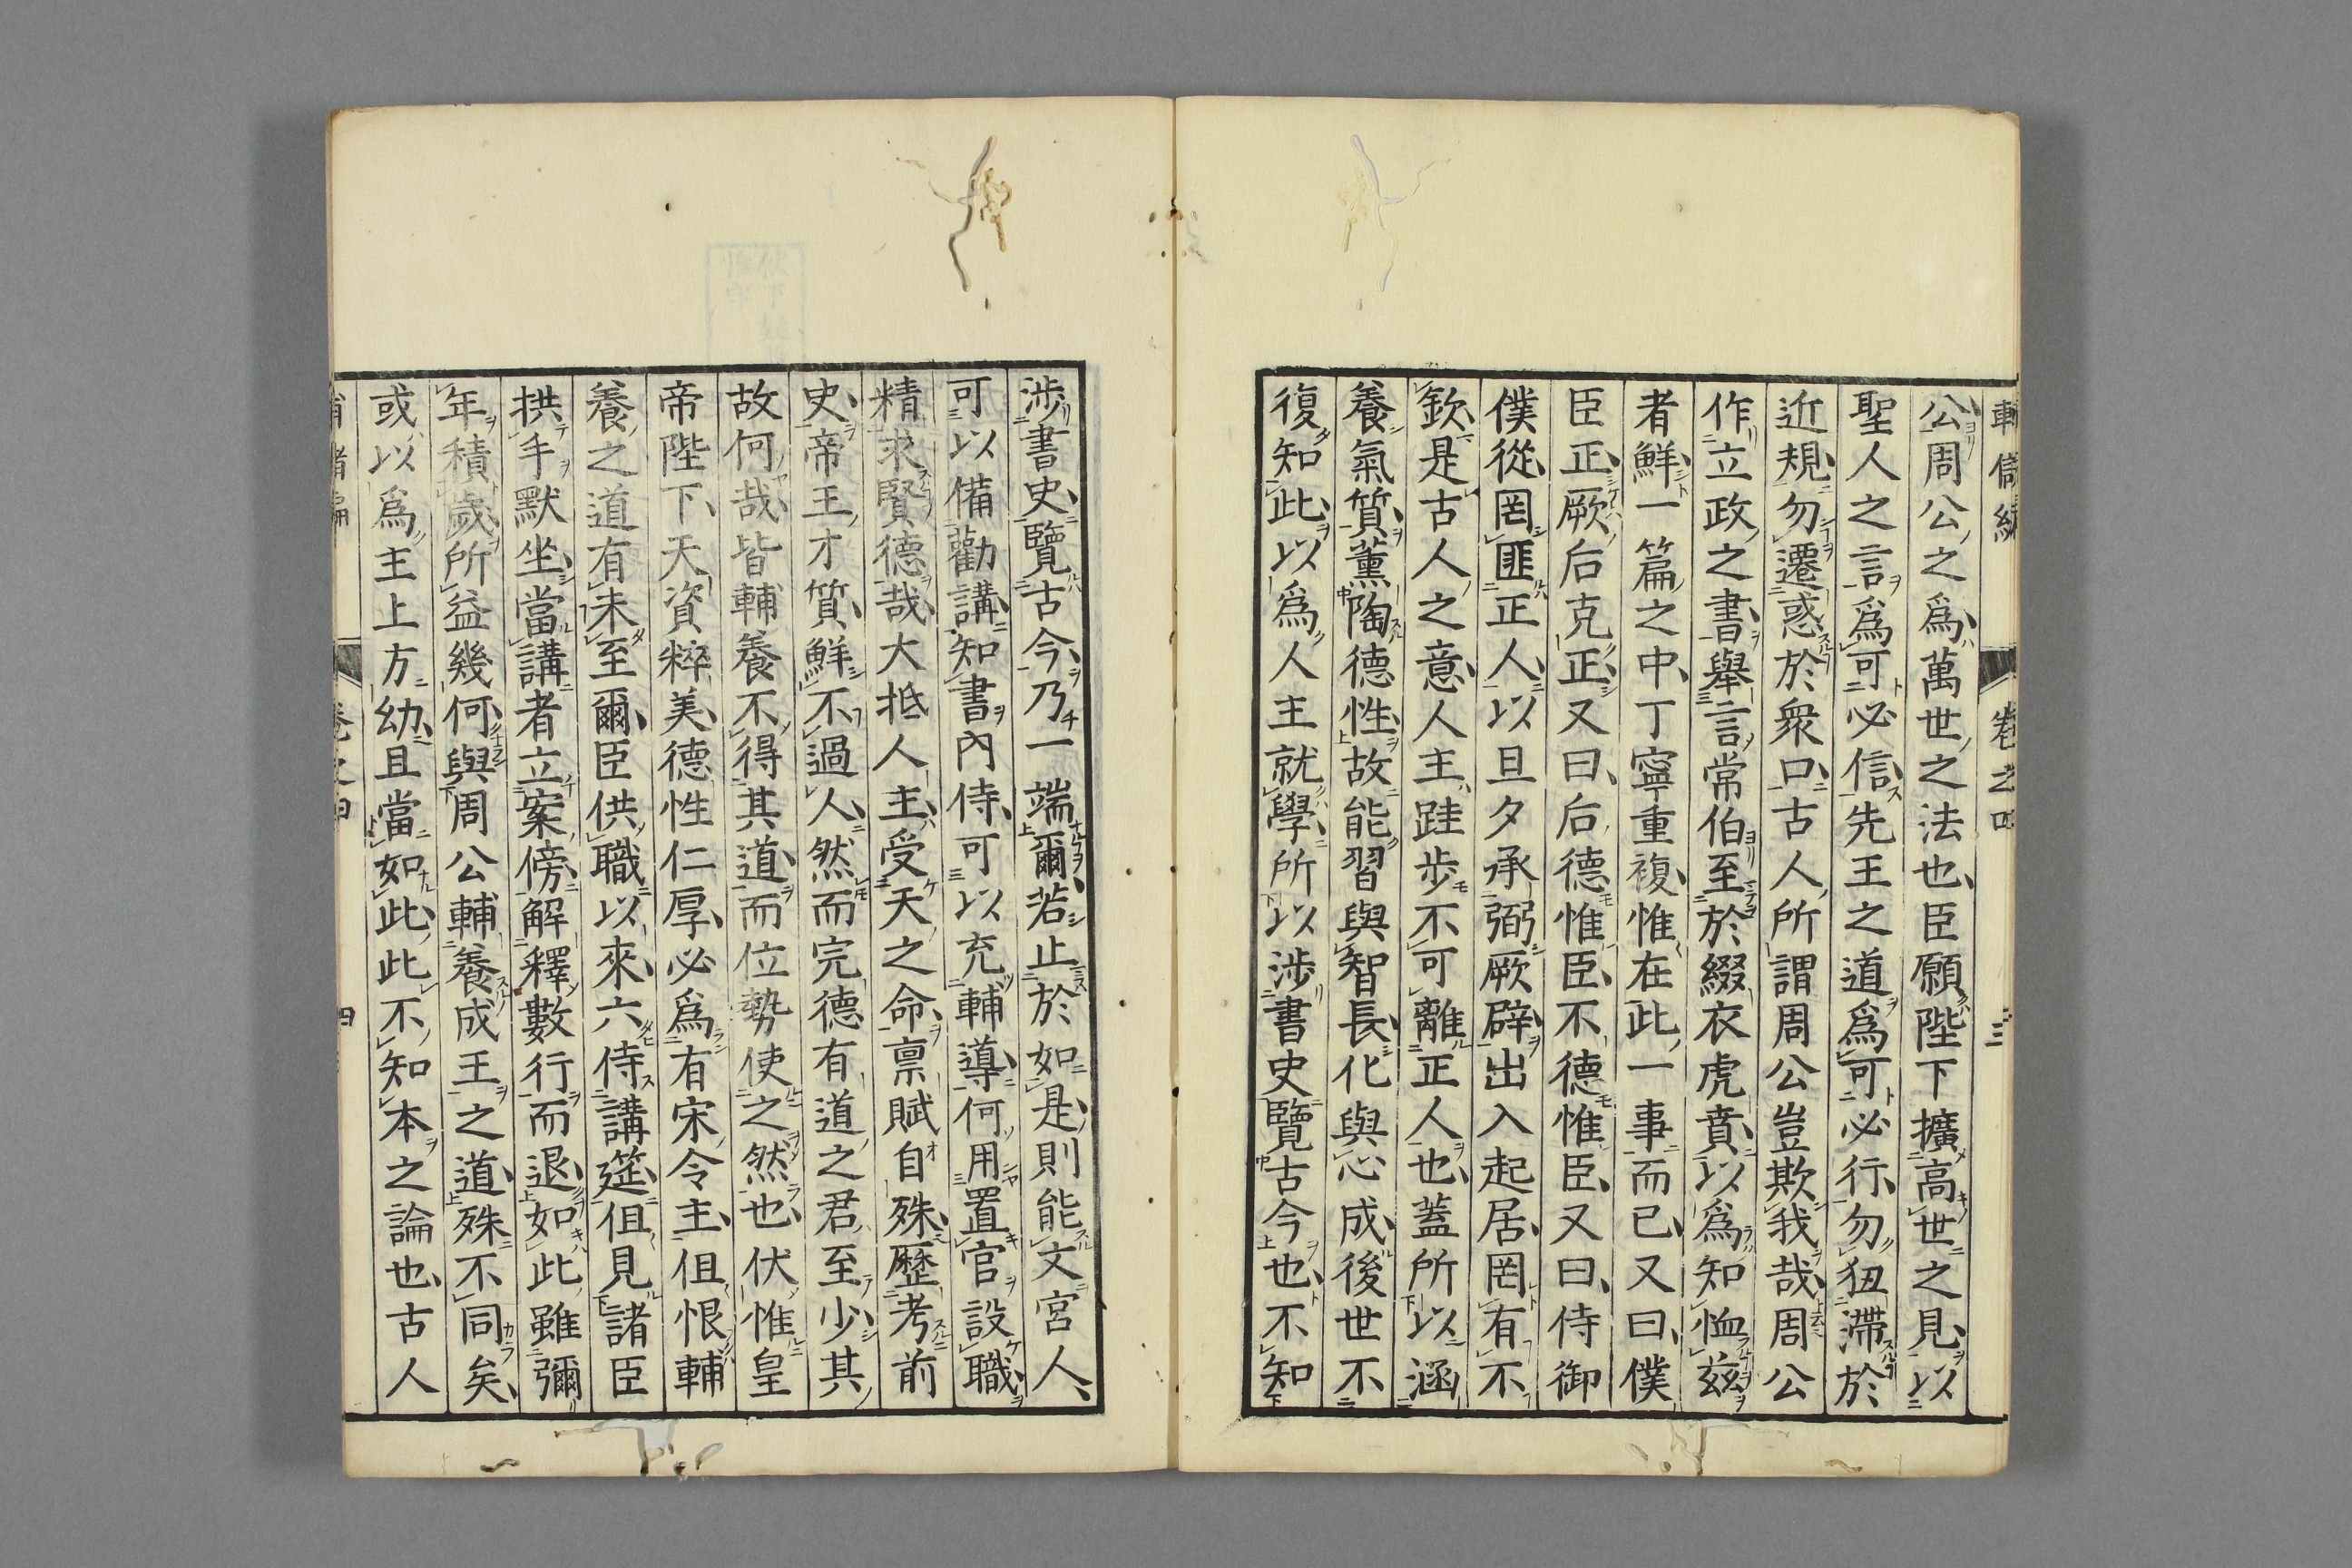 輔儲編 卷之四 三
公周公之爲萬世之法也臣願陛下擴高世之見以
聖人之言爲可必信先王之道爲可必行勿狃滯於
近規勿遷惑於衆口古人所謂周公豈欺我哉周公
作立政之書舉言常伯至於綴衣虎賁以爲知恤茲
者鮮一篇之中丁寧重複惟在此一事而已又曰僕
臣正厥后克正又曰后德惟臣不德惟臣又曰侍御
僕從罔匪正人以旦夕承弼厥辟出入起居罔有不
欽是古人之意人主跬步不可離正人也蓋所以涵
養氣質薰陶德性故能習與智長化與心成後世不
復知此以爲人主就學所以涉書史覽古今也不知
涉書史覽古今乃一端爾若止於如是則能文宮人
可以備勸講知書內侍可以充輔導何用置官設職
精求賢德哉大抵人主受天之命禀賦自殊歷考前
史帝王才質鮮不過人然而完德有道之君至少其
故何哉皆輔養不得其道而位勢使之然也伏惟皇
帝陛下天資粹美德性仁厚必爲有宋令主但恨輔
養之道有未至爾臣供職以來六侍講筵但見諸臣
拱手默坐當講者立案傍解釋數行而退如此雖彌
年積歲所益幾何與周公輔養成王之道殊不同矣
或以爲主上方幼且當如此此不知本之論也古人
卷之四 四